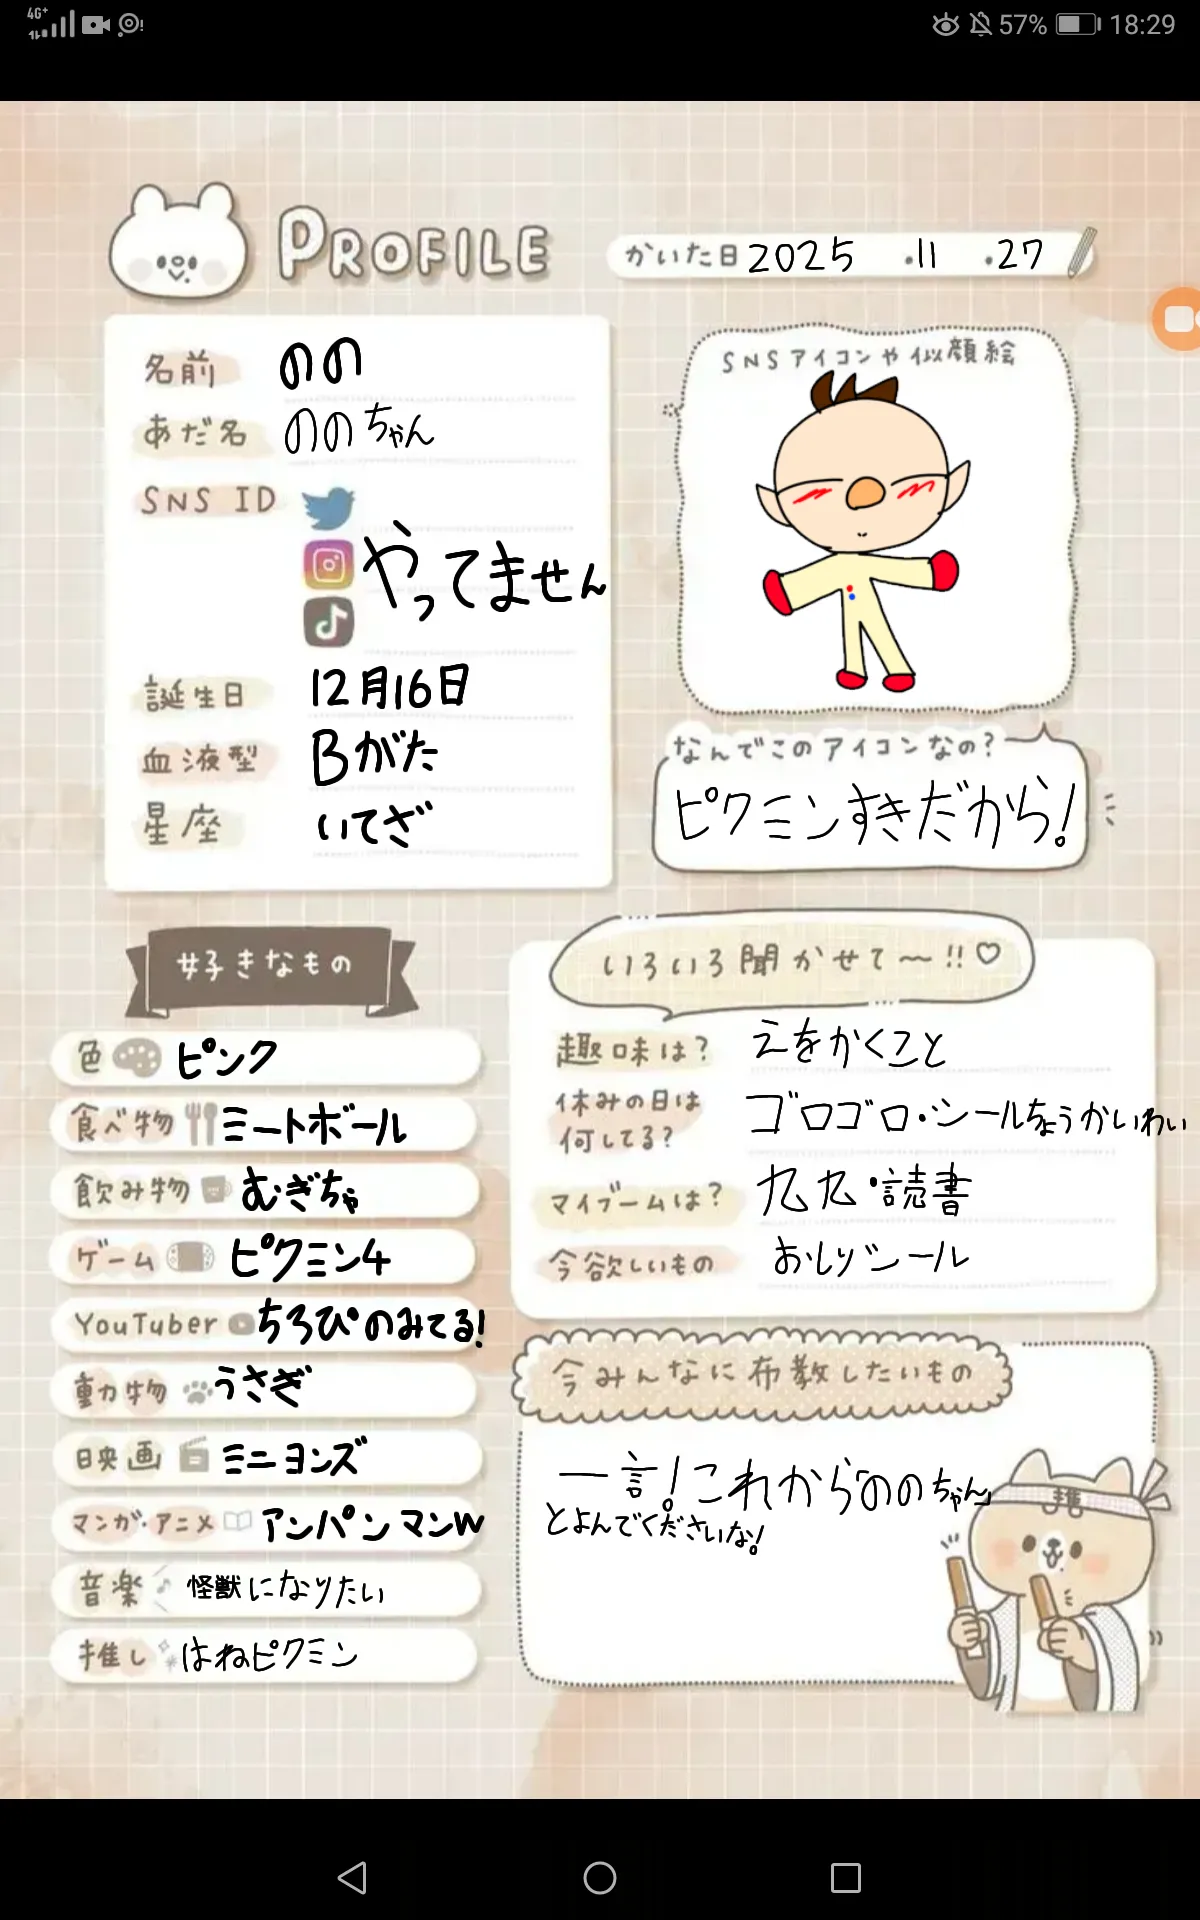 4G+
57% 18:29
PROFILE
かいた日 2025 .11 .27
名前 のの
あだ名 ののちゃん
SNS ID
やってません
誕生日 12月16日
血液型 Bがた
星座 いてざ
SNSアイコンや似顔絵
なんでこのアイコンなの?
ピクミンすきだから!
好きなもの
色 ピンク
食べ物 ミートボール
飲み物 むぎちゃ
ゲーム ピクミン4
YouTuber ちろぴのみてる!
動物 うさぎ
映画 ミニヨンズ
マンガ・アニメ アンパンマンw
音楽 怪獣になりたい
推し はねピクミン
いろいろ聞かせて〜!!♡
趣味は? えをかくこと
休みの日は
何してる? ゴロゴロ・シールちょうかいわい
マイブームは? 九九・読書
今欲しいもの おしりシール
今みんなに布教したいもの
一言!これから「ののちゃん」
とよんでくださいな!
推